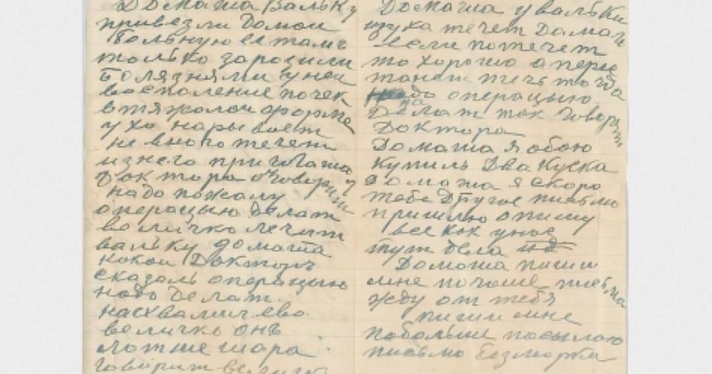 Домаша Вальку
привезли домой
больную ее тамъ
только заразили
болязнями у неи
воспаление почек
в тяжолой форме
ухо нарывает
не много течет
из него приглаша
доктора оговорили
надо пожалу
операцыю делат
величко лечит
вальку домаша
какой Докторъ
сказалъ операцыю
надо делат.
насхвалили ево
величко онъ
лотше шара
говорит величк
Домаша у вальки
уха течет Дамаш
если потечет
то хорошо а перес
танет течь тогда
надо операцыю
Делат так говорят
Доктора
Домаша я обою
купилъ Два куска
домаша я скоро
тебе Другое писмо
пришлю опишу
все как у нас
тут дела
Домаша пиши
мне почаще писма
жду от тебя
пиши мне
побольши посылаю
писмо без марки